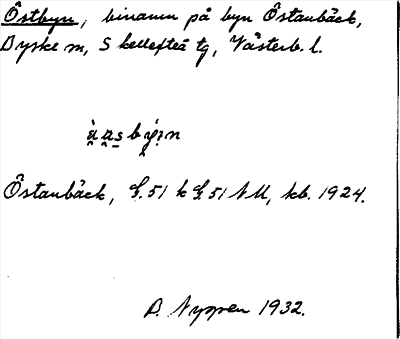 Östbyn, binamn på byn Östanbäck,
Byske sn, Skellefteå tg, Västerb. l.
Östanbäck, G. 51 k G. 51 NU, kb. 1924.
B. Nyppen 1932.